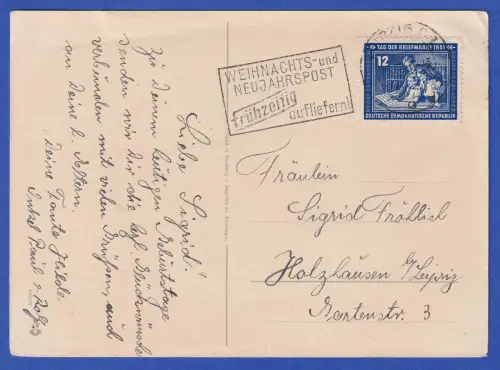 Liebe Sigrid!
Zu Deinem heutigen Geburtstage
senden wir Dir die herzl. Glückwünsche
verbunden mit vielen Grüßen, auch
an Deine l. Aeltern.
Deine Tante Hilde
Onkel Paul u.
WEIHNACHTS-und
NEUJAHRSPOST
frühzeitig
aufliefern!
TAG DER BRIEFMARKE 1951
12
DEUTSCHE DEMOKRATISCHE REPUBLIK
Fräulein
Sigrid Fröhlich
Holzhausen b/Leipzig
Gartenstr. 3